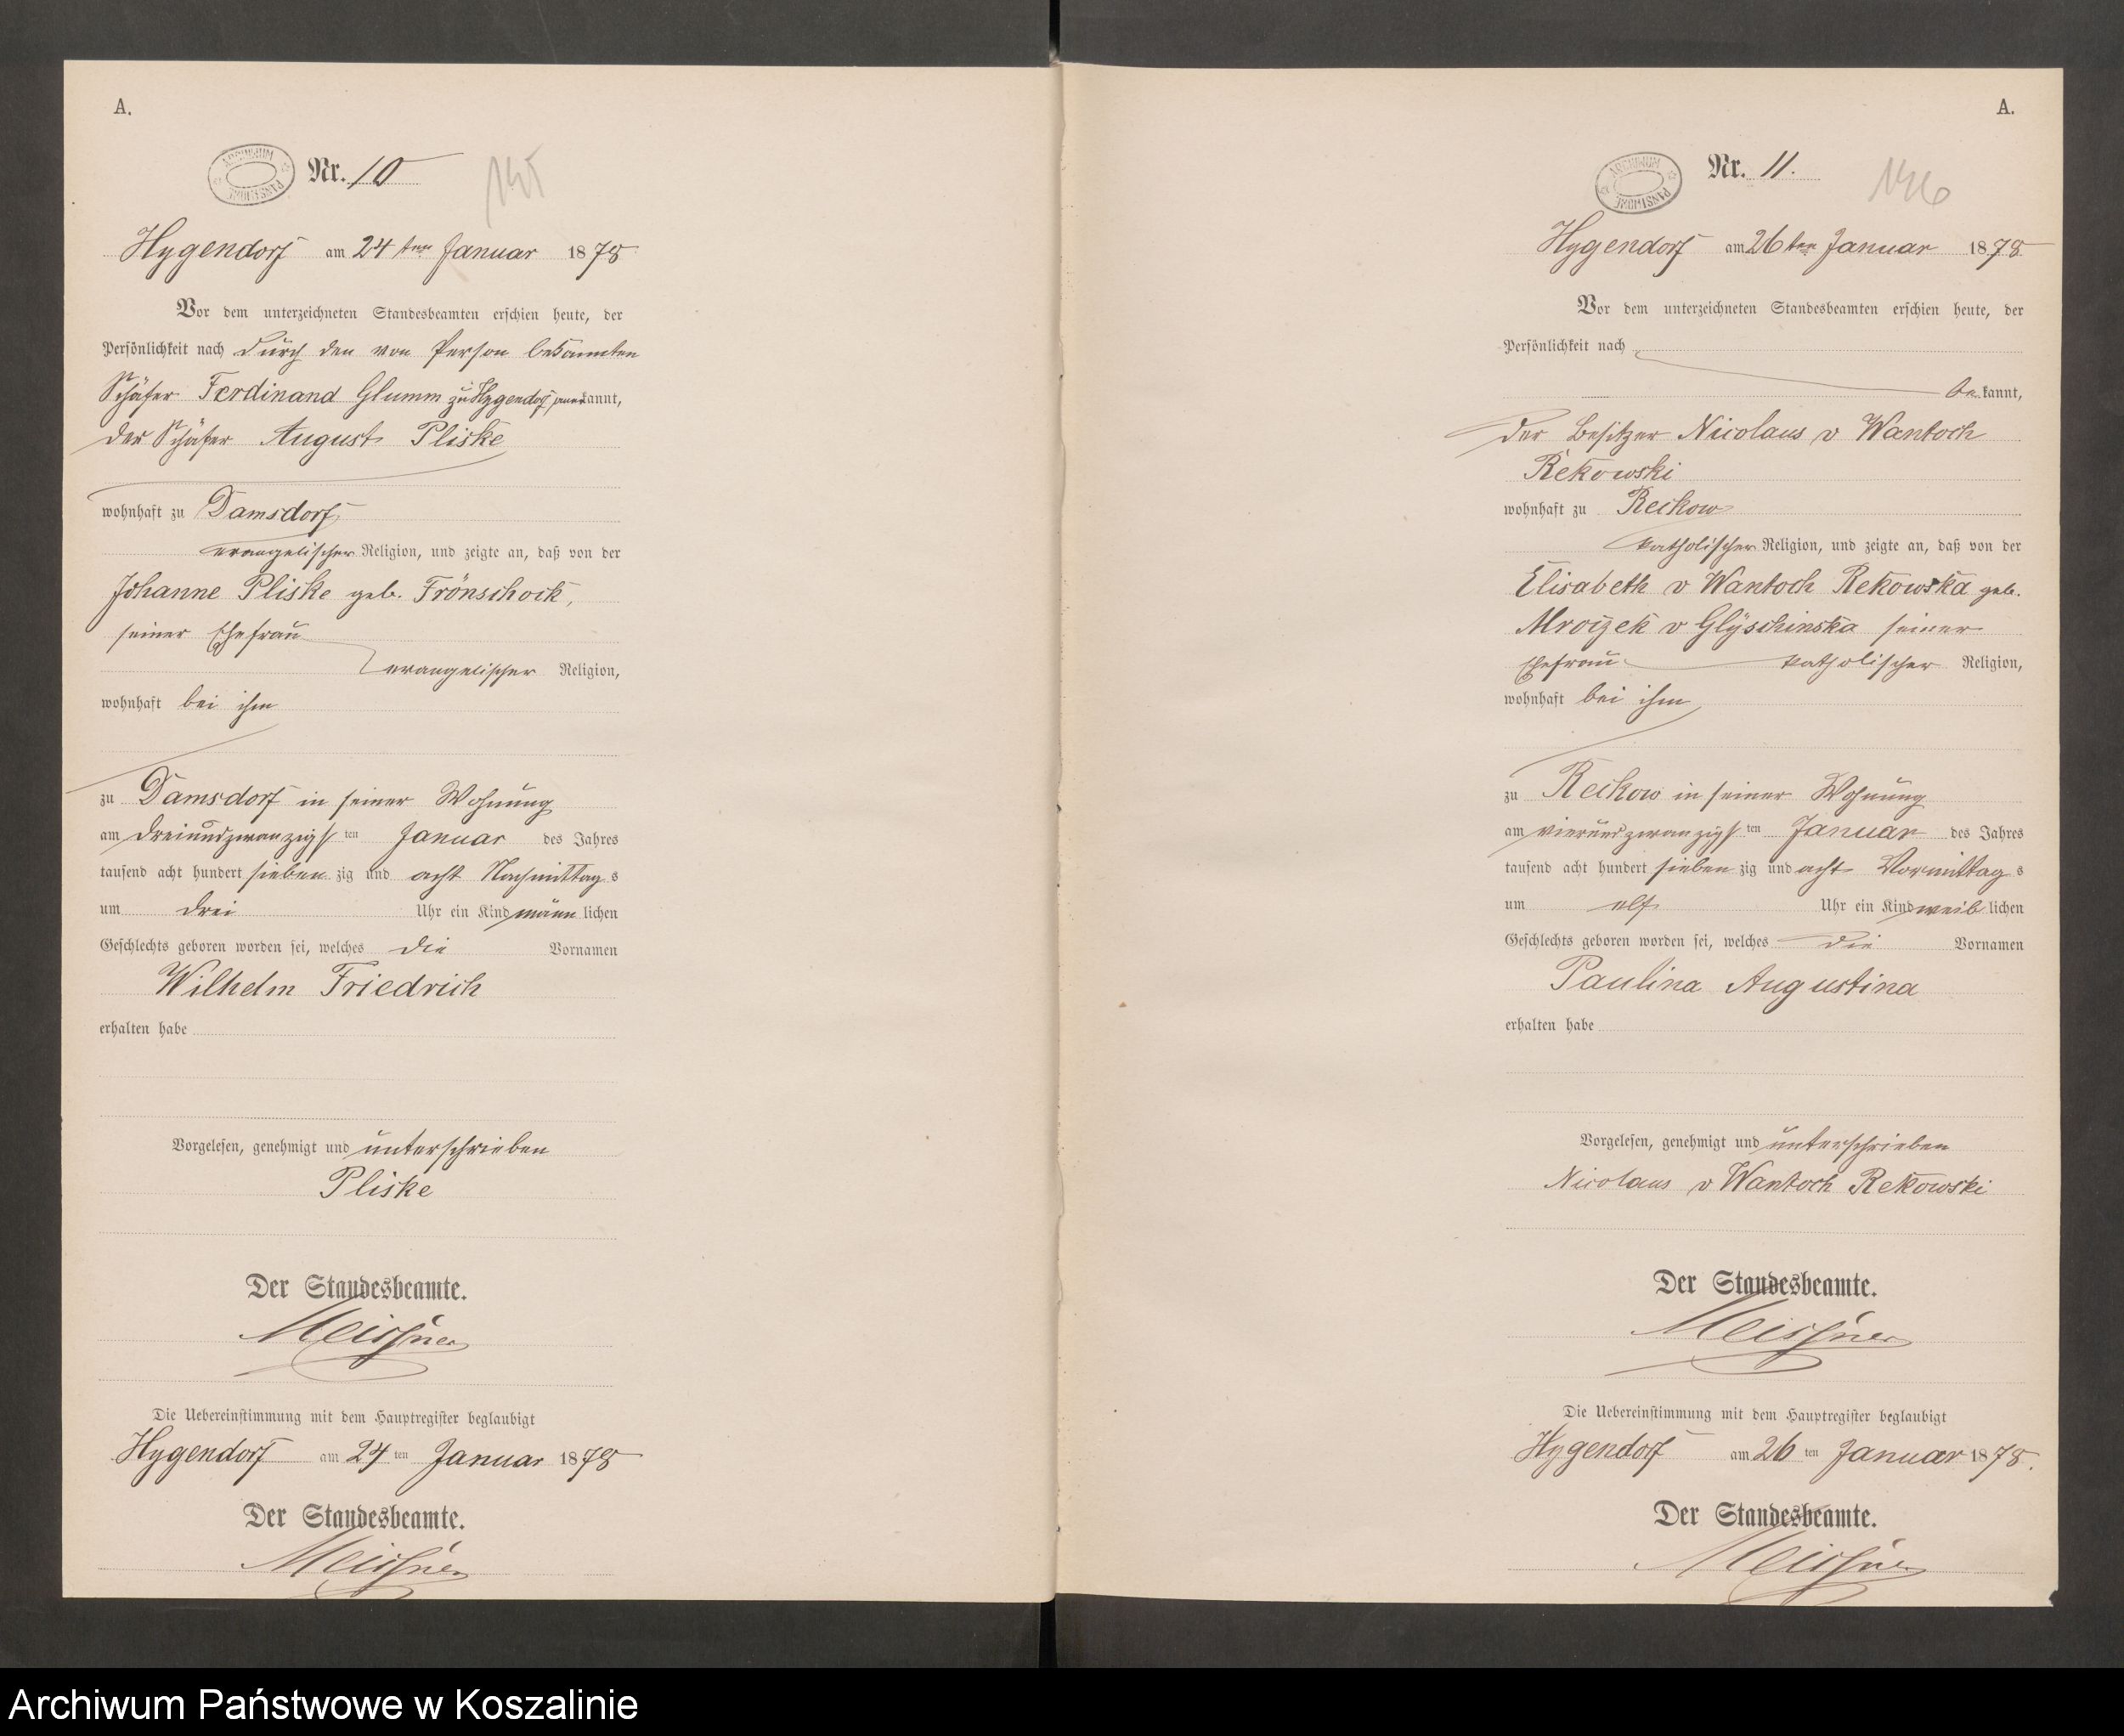 A.
ARCHIWUM PAŃSTWOWE
Nr. 10
145
Hygendorf am 24 ten Januar 1878
Vor dem unterzeichneten Standesbeamten erschien heute, der
Persönlichkeit nach durch den von Person bekannten
Schäfer Ferdinand Glumm zu Hygendorf anerkannt,
der Schäfer August Pliske
wohnhaft zu Damsdorf
evangelischer Religion, und zeigte an, daß von der
Johanne Pliske geb. Frönschock,
seiner Ehefrau
evangelischer Religion,
wohnhaft bei ihm
zu Damsdorf in seiner Wohnung
am dreiundzwanzigs ten Januar des Jahres
tausend acht hundert sieben zig und acht Nachmittag s
um drei Uhr ein Kind männ lichen
Geschlechts geboren worden sei, welches die Vornamen
Wilhelm Friedrich
erhalten habe
Vorgelesen, genehmigt und unterschrieben
Pliske
Der Standesbeamte.
Meissner
Die Uebereinstimmung mit dem Hauptregister beglaubigt
Hygendorf am 24 ten Januar 1878
Der Standesbeamte.
Meissner
A.
ARCHIWUM PAŃSTWOWE
Nr. 11.
146
Hygendorf am 26 ten Januar 1878
Vor dem unterzeichneten Standesbeamten erschien heute, der
Persönlichkeit nach
be kannt,
der Besitzer Nicolaus v Wantoch
Rekowski
wohnhaft zu Reckow
katholischer Religion, und zeigte an, daß von der
Elisabeth v Wantoch Rekowska geb.
Mroczek v Glyschinska seiner
Ehefrau katholischer Religion,
wohnhaft bei ihm
zu Reckow in seiner Wohnung
am vierundzwanzigs ten Januar des Jahres
tausend acht hundert sieben zig und acht Vormittag s
um elf Uhr ein Kind weib lichen
Geschlechts geboren worden sei, welches die Vornamen
Paulina Augustina
erhalten habe
Vorgelesen, genehmigt und unterschrieben
Nicolaus v Wantoch Rekowski
Der Standesbeamte.
Meissner
Die Uebereinstimmung mit dem Hauptregister beglaubigt
Hygendorf am 26 ten Januar 1878.
Der Standesbeamte.
Meissner
Archiwum Państwowe w Koszalinie